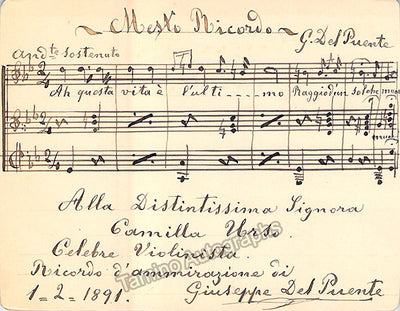 Mesto Ricordo
G. Del Puente
And.te sostenuto
Ah questa vita è l'ulti - - - - mo Raggio d'un sol che muor
muor
Alla Distintissima Signora
Camilla Urso
Celebre Violinista.
Ricordo d'ammirazione di
1-2-1891. Giuseppe Del Puente
Tamino Autographs